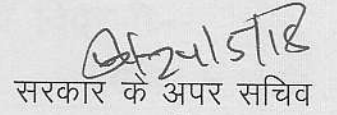 24/5/18
सरकार के अपर सचिव